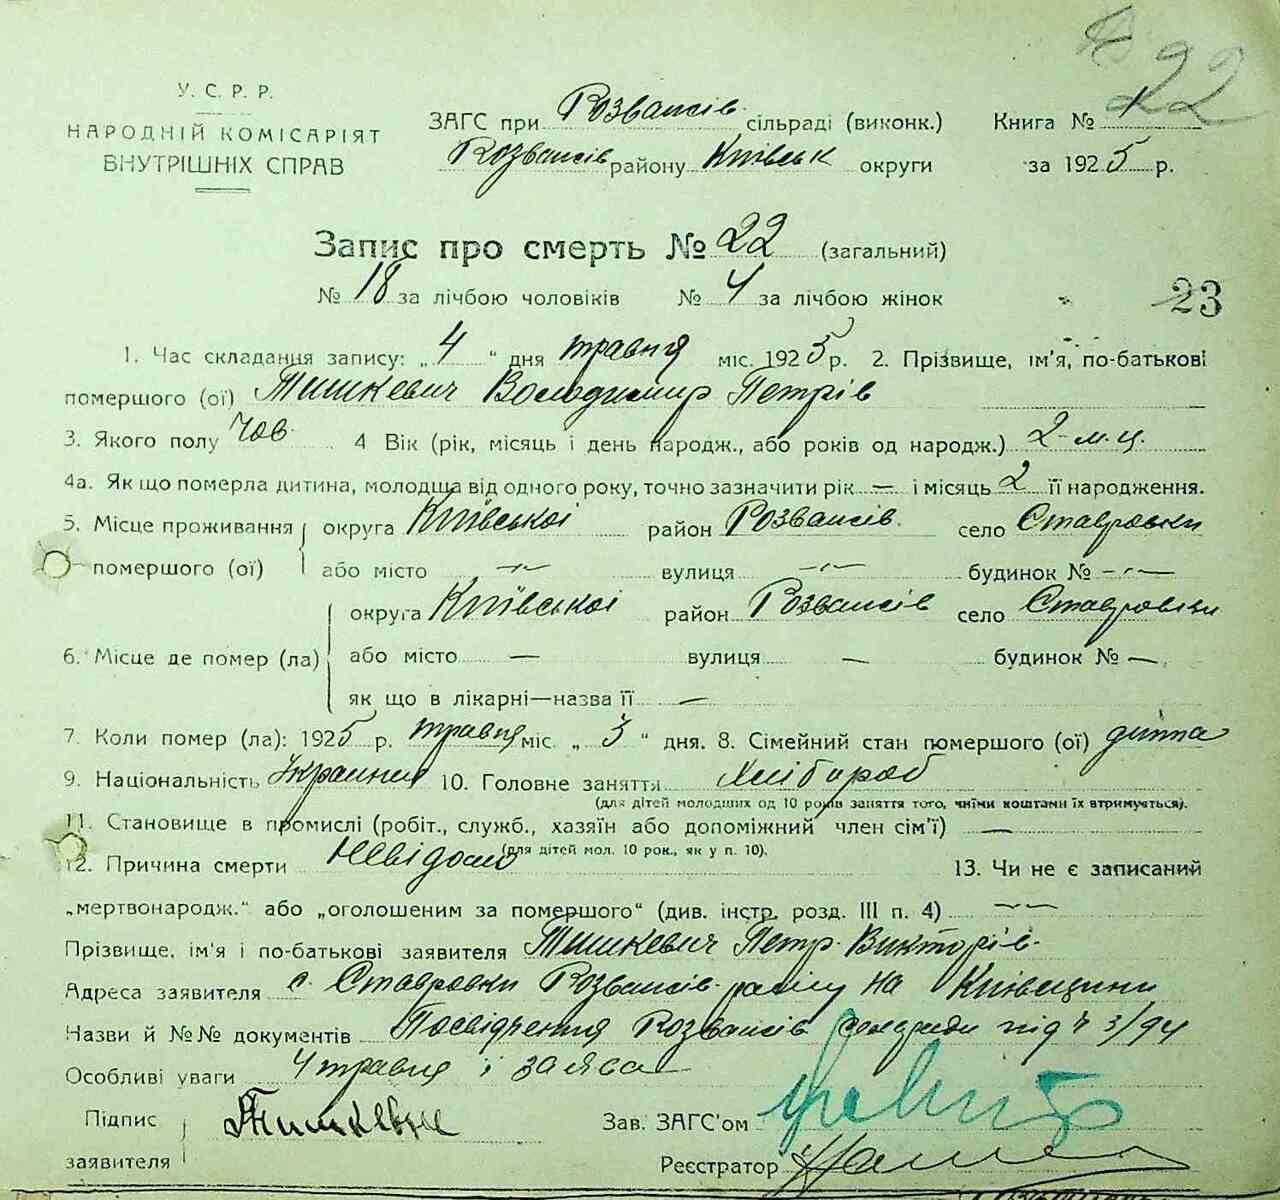 22
У. С. Р. Р.
НАРОДНІЙ КОМІСАРІЯТ
ВНУТРІШНІХ СПРАВ
ЗАГС при Розважів. сільраді (виконк.) Книга №
Розважів району Київськ округи за 1925 р.
Запис про смерть № 22 (загальний)
№ 18 за лічбою чоловіків № 4 за лічбою жінок
23
1. Час складання запису: „4“ дня травня міс. 1925 р. 2. Прізвище, ім'я, по-батькові
помершого (ої) Тишкевич Володимир Петрів
3. Якого полу Чов. 4 Вік (рік, місяць і день народж., або років од народж.) 2-м-ц.
4а. Як що померла дитина, молодща від одного року, точно зазначити рік — і місяць 2 її народження.
5. Місце проживання помершого (ої) округа Київської район Розважів. село Ставровки
або місто —„— вулиця —„— будинок № —„—
6. Місце де помер (ла) округа Київської район Розважів село Ставровки
або місто — вулиця — будинок № —
як що в лікарні—назва її —
7. Коли помер (ла): 1925 р. травня міс. „3“ дня. 8. Сімейний стан помершого (ої) дитина
9. Національність Украинец 10. Головне заняття Хлібороб
(для дітей молодших од 10 років заняття того, чиїми коштами їх втримується).
11. Становище в промислі (робіт., служб., хазяїн або допоміжний член сім'ї) —
(для дітей мол. 10 рок., як у п. 10).
12. Причина смерти невідомо 13. Чи не є записаний
„мертвонародж.“ або „оголошеним за помершого“ (див. інстр. розд. III п. 4) —
Прізвище, ім'я і по-батькові заявителя Тишкевич Петр. Викторів.
Адреса заявителя с. Ставровки Розважів. району на Київщини
Назви й №№ документів Посвідчення Розважів сельради під ч 3/94
Особливі уваги 4 травня і заява
Підпис заявителя Тишкевич Зав. ЗАГС'ом
Реєстратор